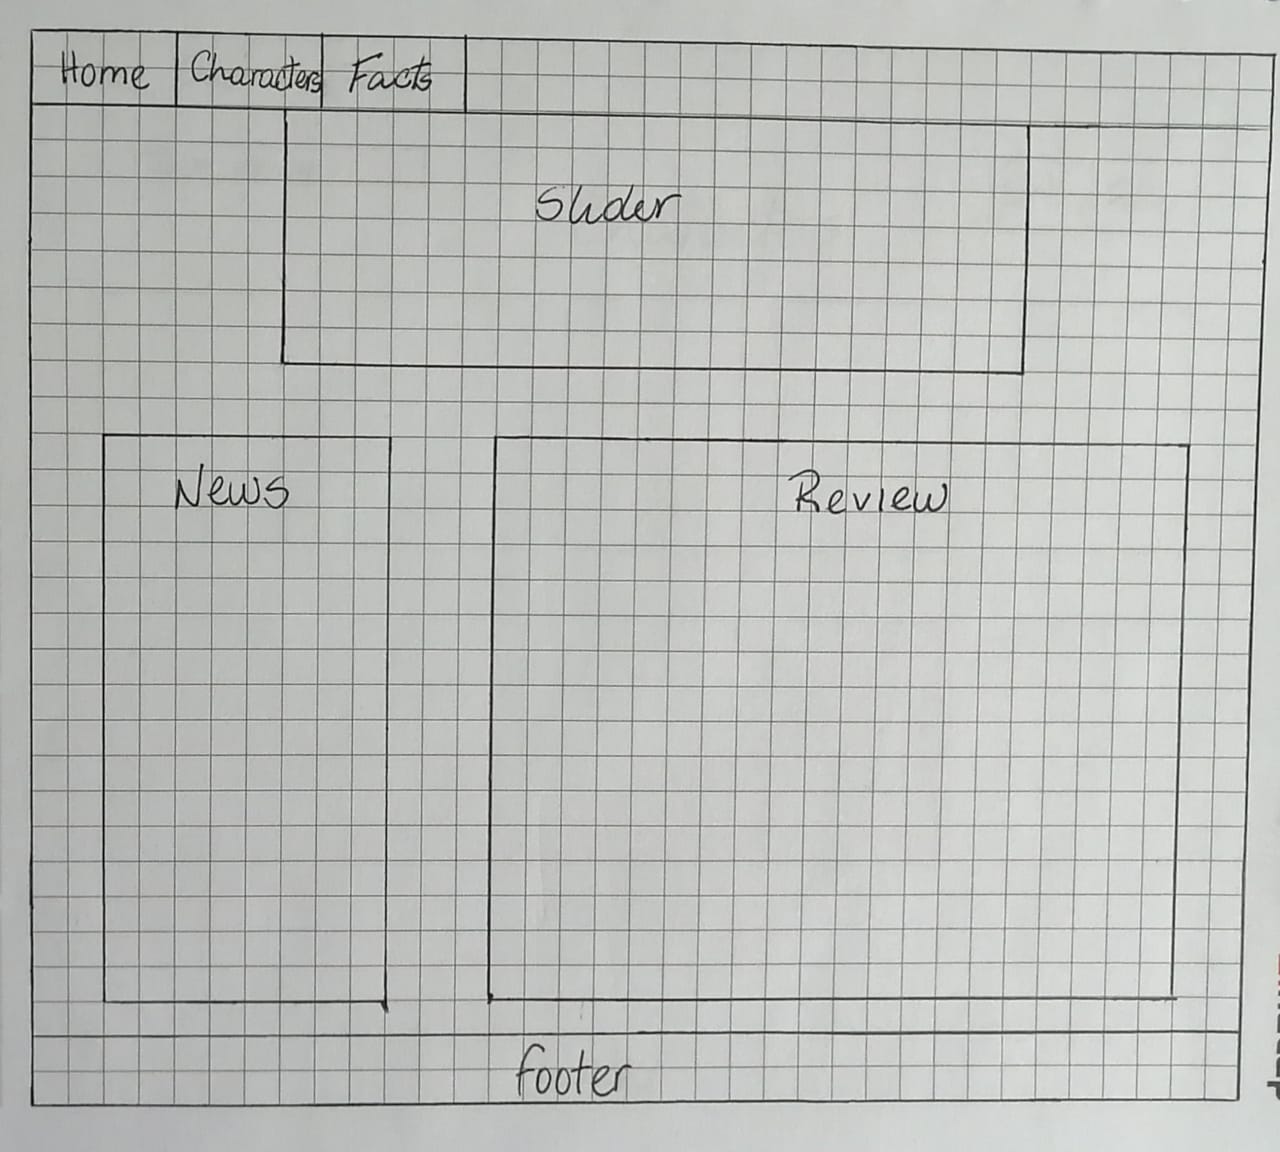 Home Characters Facts
Slider
News Review
footer